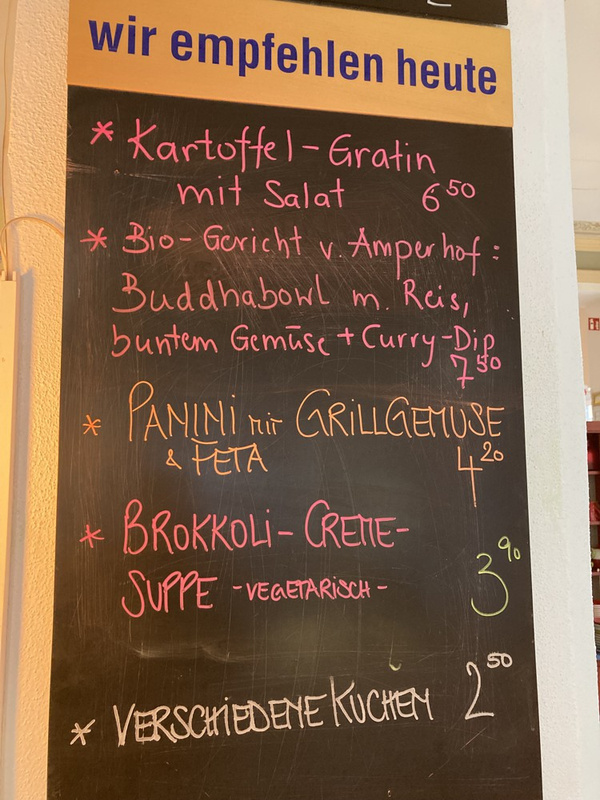 wir empfehlen heute
* Kartoffel-Gratin
mit Salat 6 50
* Bio-Gericht v. Amperhof:
Buddhabowl m. Reis,
buntem Gemüse + Curry-Dip
7 50
* PANINI mit GRILLGEMÜSE
& FETA 4 20
* BROKKOLI-CREME-
SUPPE -VEGETARISCH- 3 90
* VERSCHIEDENE KUCHEN 2 50